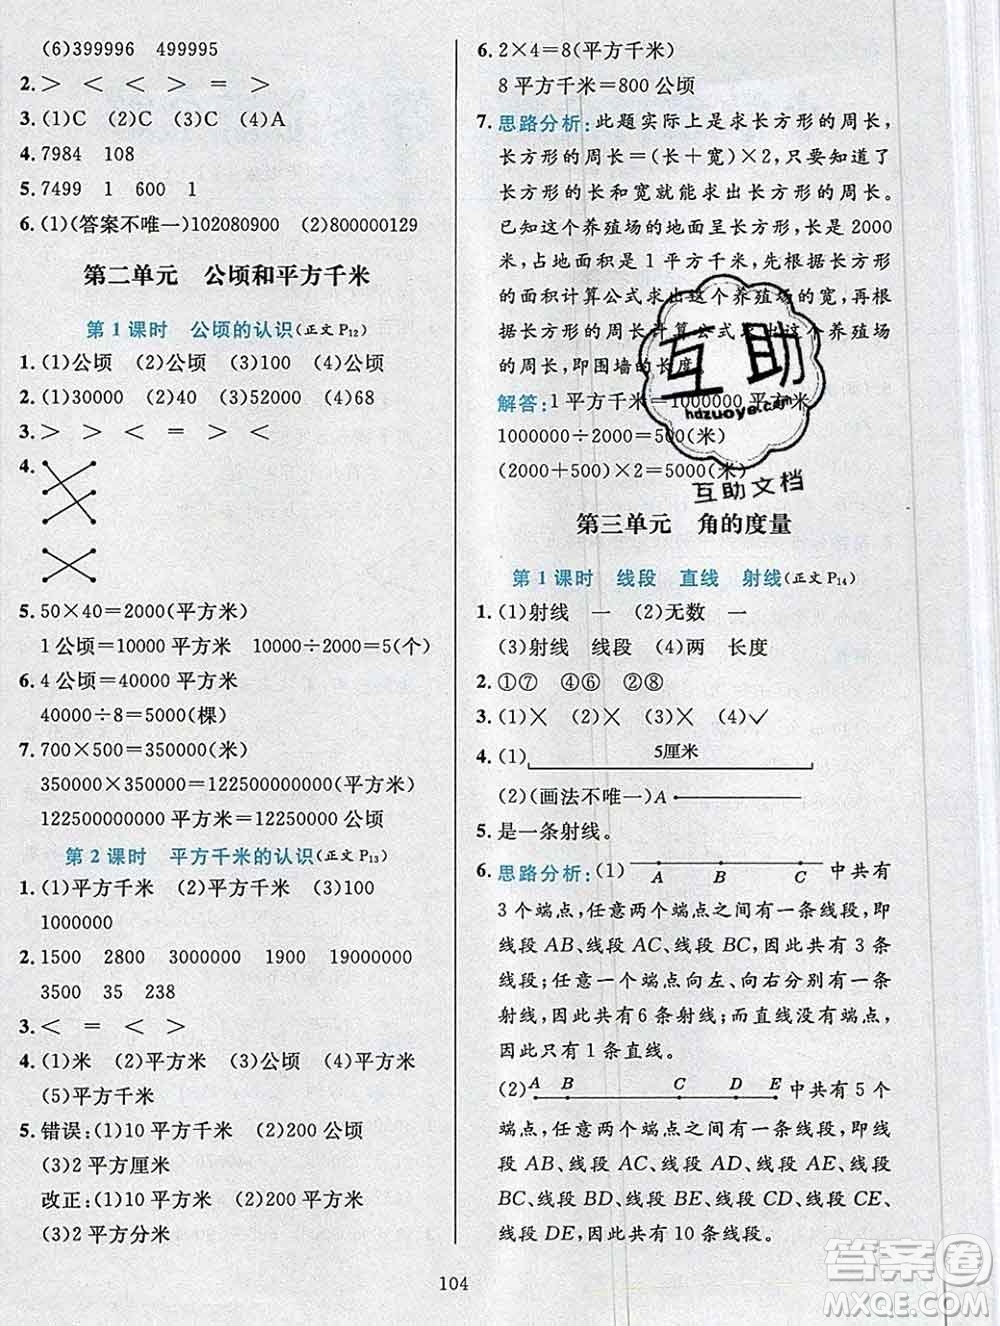 (6)399996 499995
2. > < < > = >
3. (1)C (2)C (3)C (4)A
4. 7984 108
5. 7499 1 600 1
6. (1)(答案不唯一)102080900 (2)800000129
第二单元 公顷和平方千米
第 1 课时 公顷的认识(正文 P12)
1. (1)公顷 (2)公顷 (3)100 (4)公顷
2. (1)30000 (2)40 (3)52000 (4)68
3. > > < = > <
4.
5. 50×40=2000(平方米)
1 公顷=10000 平方米 10000÷2000=5(个)
6. 4 公顷=40000 平方米
40000÷8=5000(棵)
7. 700×500=350000(米)
350000×350000=122500000000(平方米)
122500000000 平方米=12250000 公顷
第 2 课时 平方千米的认识(正文 P13)
1. (1)平方千米 (2)平方千米 (3)100
1000000
2. 1500 2800 3000000 1900 19000000
3500 35 238
3. < = < >
4. (1)米 (2)平方米 (3)公顷 (4)平方千米
(5)平方千米
5. 错误:(1)10 平方千米 (2)200 公顷
(3)2 平方厘米
改正:(1)10 平方米 (2)200 平方米
(3)2 平方分米
6. 2×4=8(平方千米)
8 平方千米=800 公顷
7. 思路分析:此题实际上是求长方形的周长,
长方形的周长=(长+宽)×2,只要知道了
长方形的长和宽就能求出长方形的周长。
已知这个养殖场的地面呈长方形,长是 2000
米,占地面积是 1 平方千米,先根据长方形
的面积计算公式求出这个养殖场的宽,再根
据长方形的周长计算公式求出这个养殖场
的周长,即围墙的长度。
解答:1 平方千米=1000000 平方米
1000000÷2000=500(米)
(2000+500)×2=5000(米)
互助
hdzuoye.com
互助文档
第三单元 角的度量
第 1 课时 线段 直线 射线(正文 P14)
1. (1)射线 一 (2)无数 一
(3)射线 线段 (4)两 长度
2. ①⑦ ④⑥ ②⑧
3. (1)× (2)× (3)× (4)✓
4. (1) 5厘米
(2)(画法不唯一)A
5. 是一条射线。
6. 思路分析:(1) A B C 中共有
3 个端点,任意两个端点之间有一条线段,即
线段 AB、线段 AC、线段 BC,因此共有 3 条
线段;任意一个端点向左、向右各有一条射
线,因此共有6 条射线;而直线没有端点,
因此只有 1 条直线。
(2) A B C D E 中共有 5 个
端点,任意两个端点之间有一条线段,即线
段 AB、线段 AC、线段 AD、线段 AE、线段
BC、线段 BD、线段 BE、线段 CD、线段 CE、
线段 DE,因此共有 10 条线段。
104
答案圈
MXQE.COM